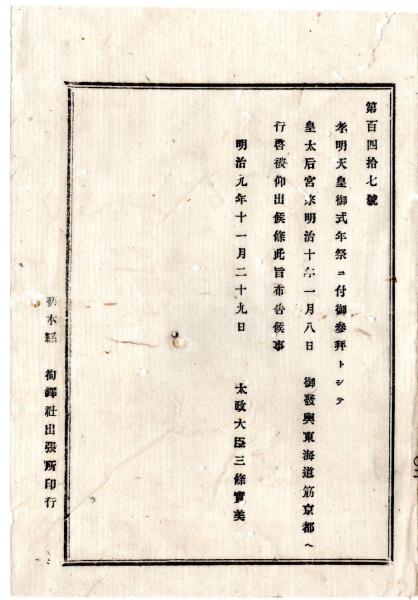 第百四拾七號
孝明天皇御式年祭ニ付御參拜トシテ
皇太后宮來明治十年一月八日 御發輿東海道筋京都ヘ
行啓被仰出候條此旨布告候事
明治九年十一月二十九日 太政大臣三條實美
栃木縣 荀鐸社出張所印行